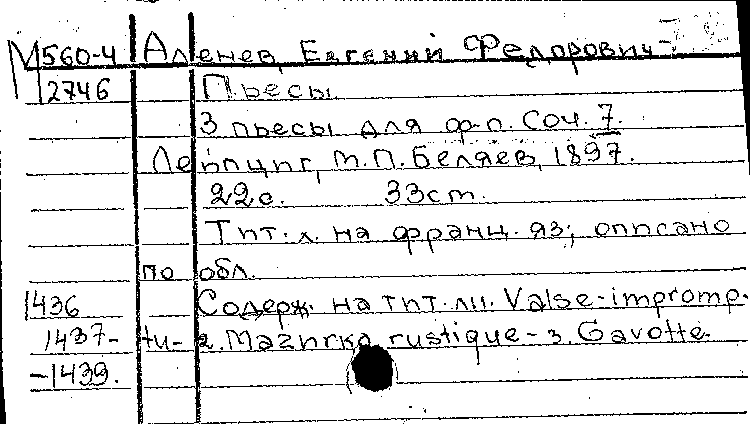 М560-4 Аленев, Евгений Федорович
12746 Пьесы
3 пьесы для ф-п. Соч. 7.
Лейпциг, М.П. Беляев, 1897.
22с. 33см.
Тит. л. на франц. яз; описано
по обл.
1436 Содерж. на тит. л: 1. Valse-impromp-
1437- tu- 2. Mazurka rustique- 3. Gavotte.
-1439.